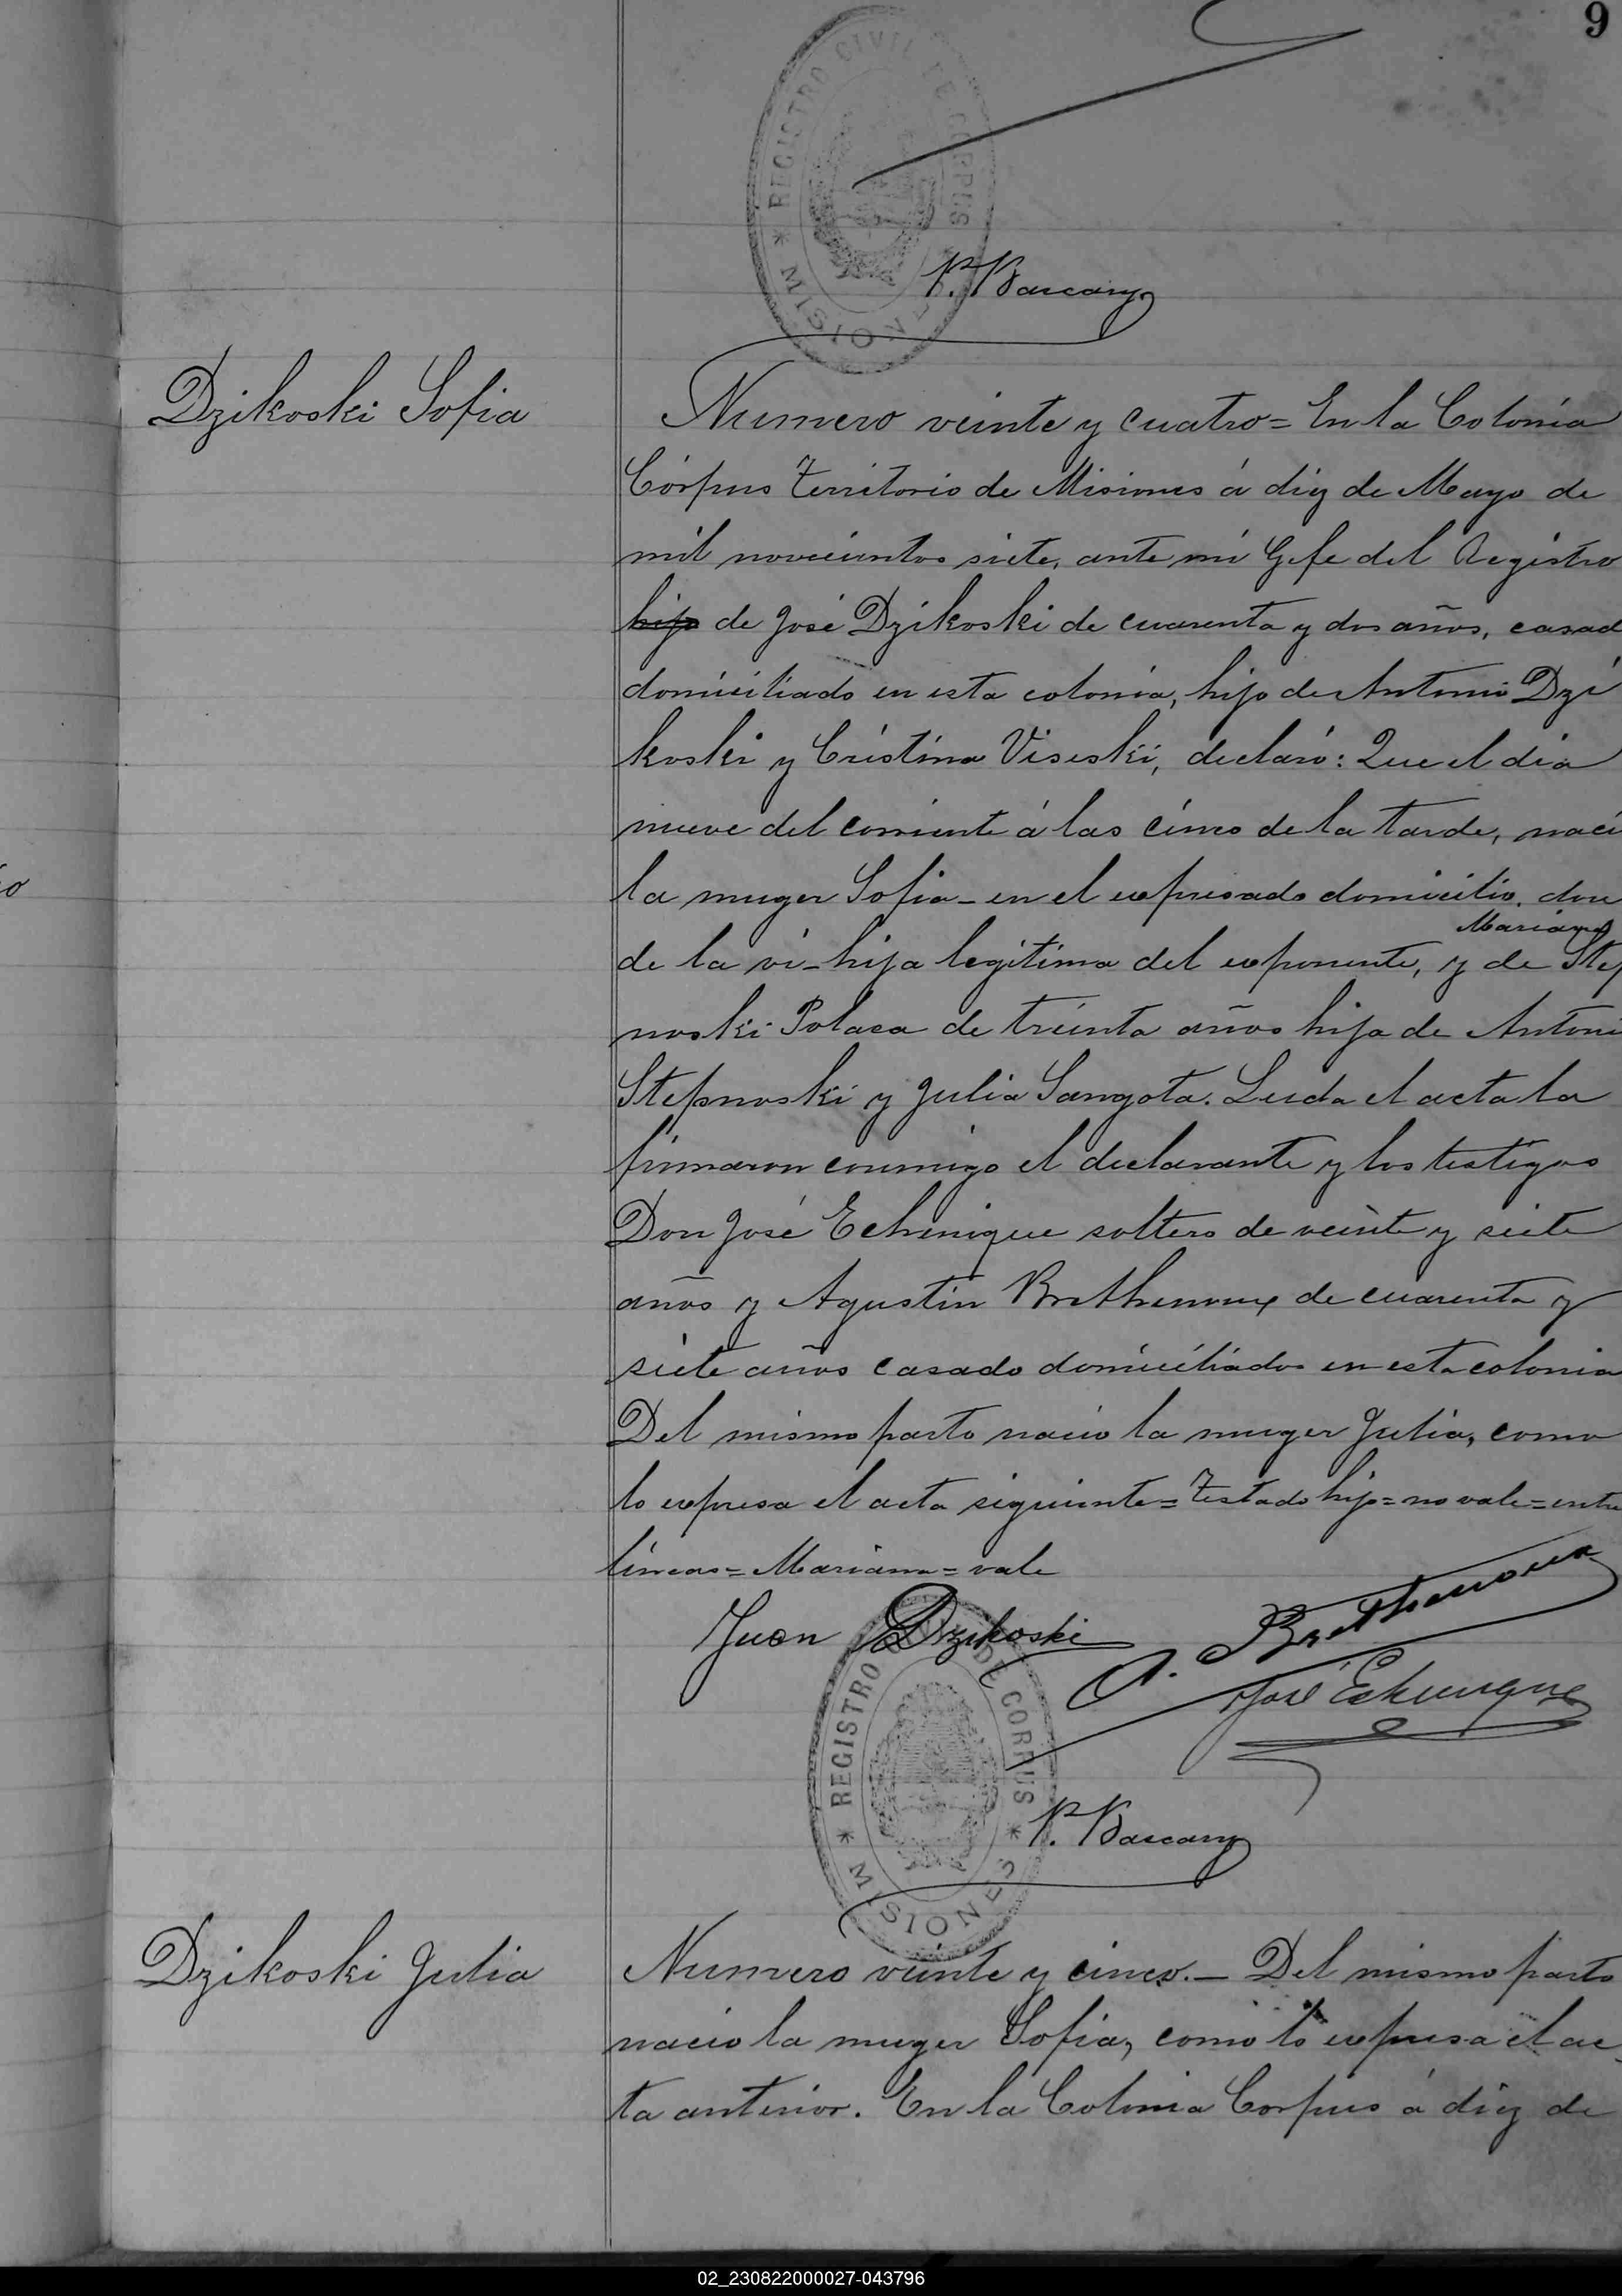 9
REGISTRO CIVIL DE CORPUS * MISIONES
P. Bascary
Dzikoski Sofia
Numero veinte y cuatro = En la Colonia
Córpus Territorio de Misiones á diez de Mayo de
mil novecientos siete, ante mi Gefe del Registro
hijo de José Dzikoski de cuarenta y dos años, casad
domiciliado en esta colonia, hijo de Antonio Dzi
koski y Cristina Viseski, declaró: Que el dia
nueve del corriente á las cinco de la tarde, naci
la muger Sofia - en el expresado domicilio, don
Mariana
de la vi - hija legitima del exponente, y de Step
noski Polaca de treinta años hija de Antoni
Stepnoski y Julia Sangota. Leida el acta la
firmaron conmigo el declarante y los testigos
Don José Echenique soltero de veinte y siete
años y Agustin Brethenoux de cuarenta y
siete años casado domiciliados en esta colonia
Del mismo parto nació la muger Julia, como
lo expresa el acta siguiente = Testado hijo = no vale = entre
lineas = Mariana = vale
Juan Dzikoski
A. Brethenoux
José Echenique
REGISTRO DE CORPUS * MISIONES *
P. Bascary
Dzikoski Julia
Numero veinte y cinco. - Del mismo parto
nacio la muger Sofia, como lo expresa el ac
ta anterior. En la Colonia Corpus á diez de
02_230822000027-043796